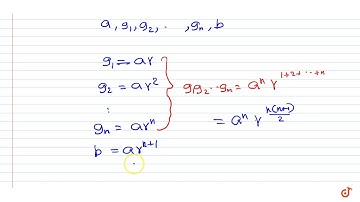 a, g₁, g₂, . ˙ ,gₙ, b
g₁ = ar
g₂ = ar²
:
gₙ = arⁿ
b = arⁿ⁺¹
g₁g₂ ·· gₙ = aⁿ r^{1+2+ ··· +n}
= aⁿ r^{n(n+1)/2}